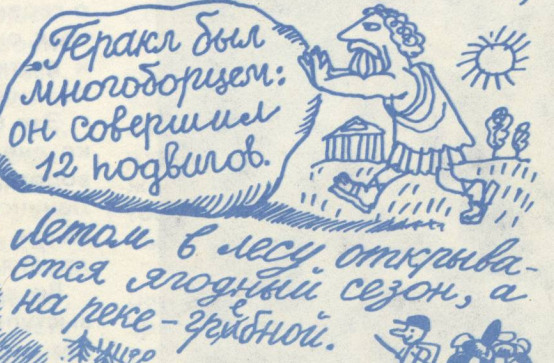 Геракл был
многоборцем:
он совершил
12 подвигов.
Летом в лесу открыва-
ется ягодный сезон, а
на реке – гребной.